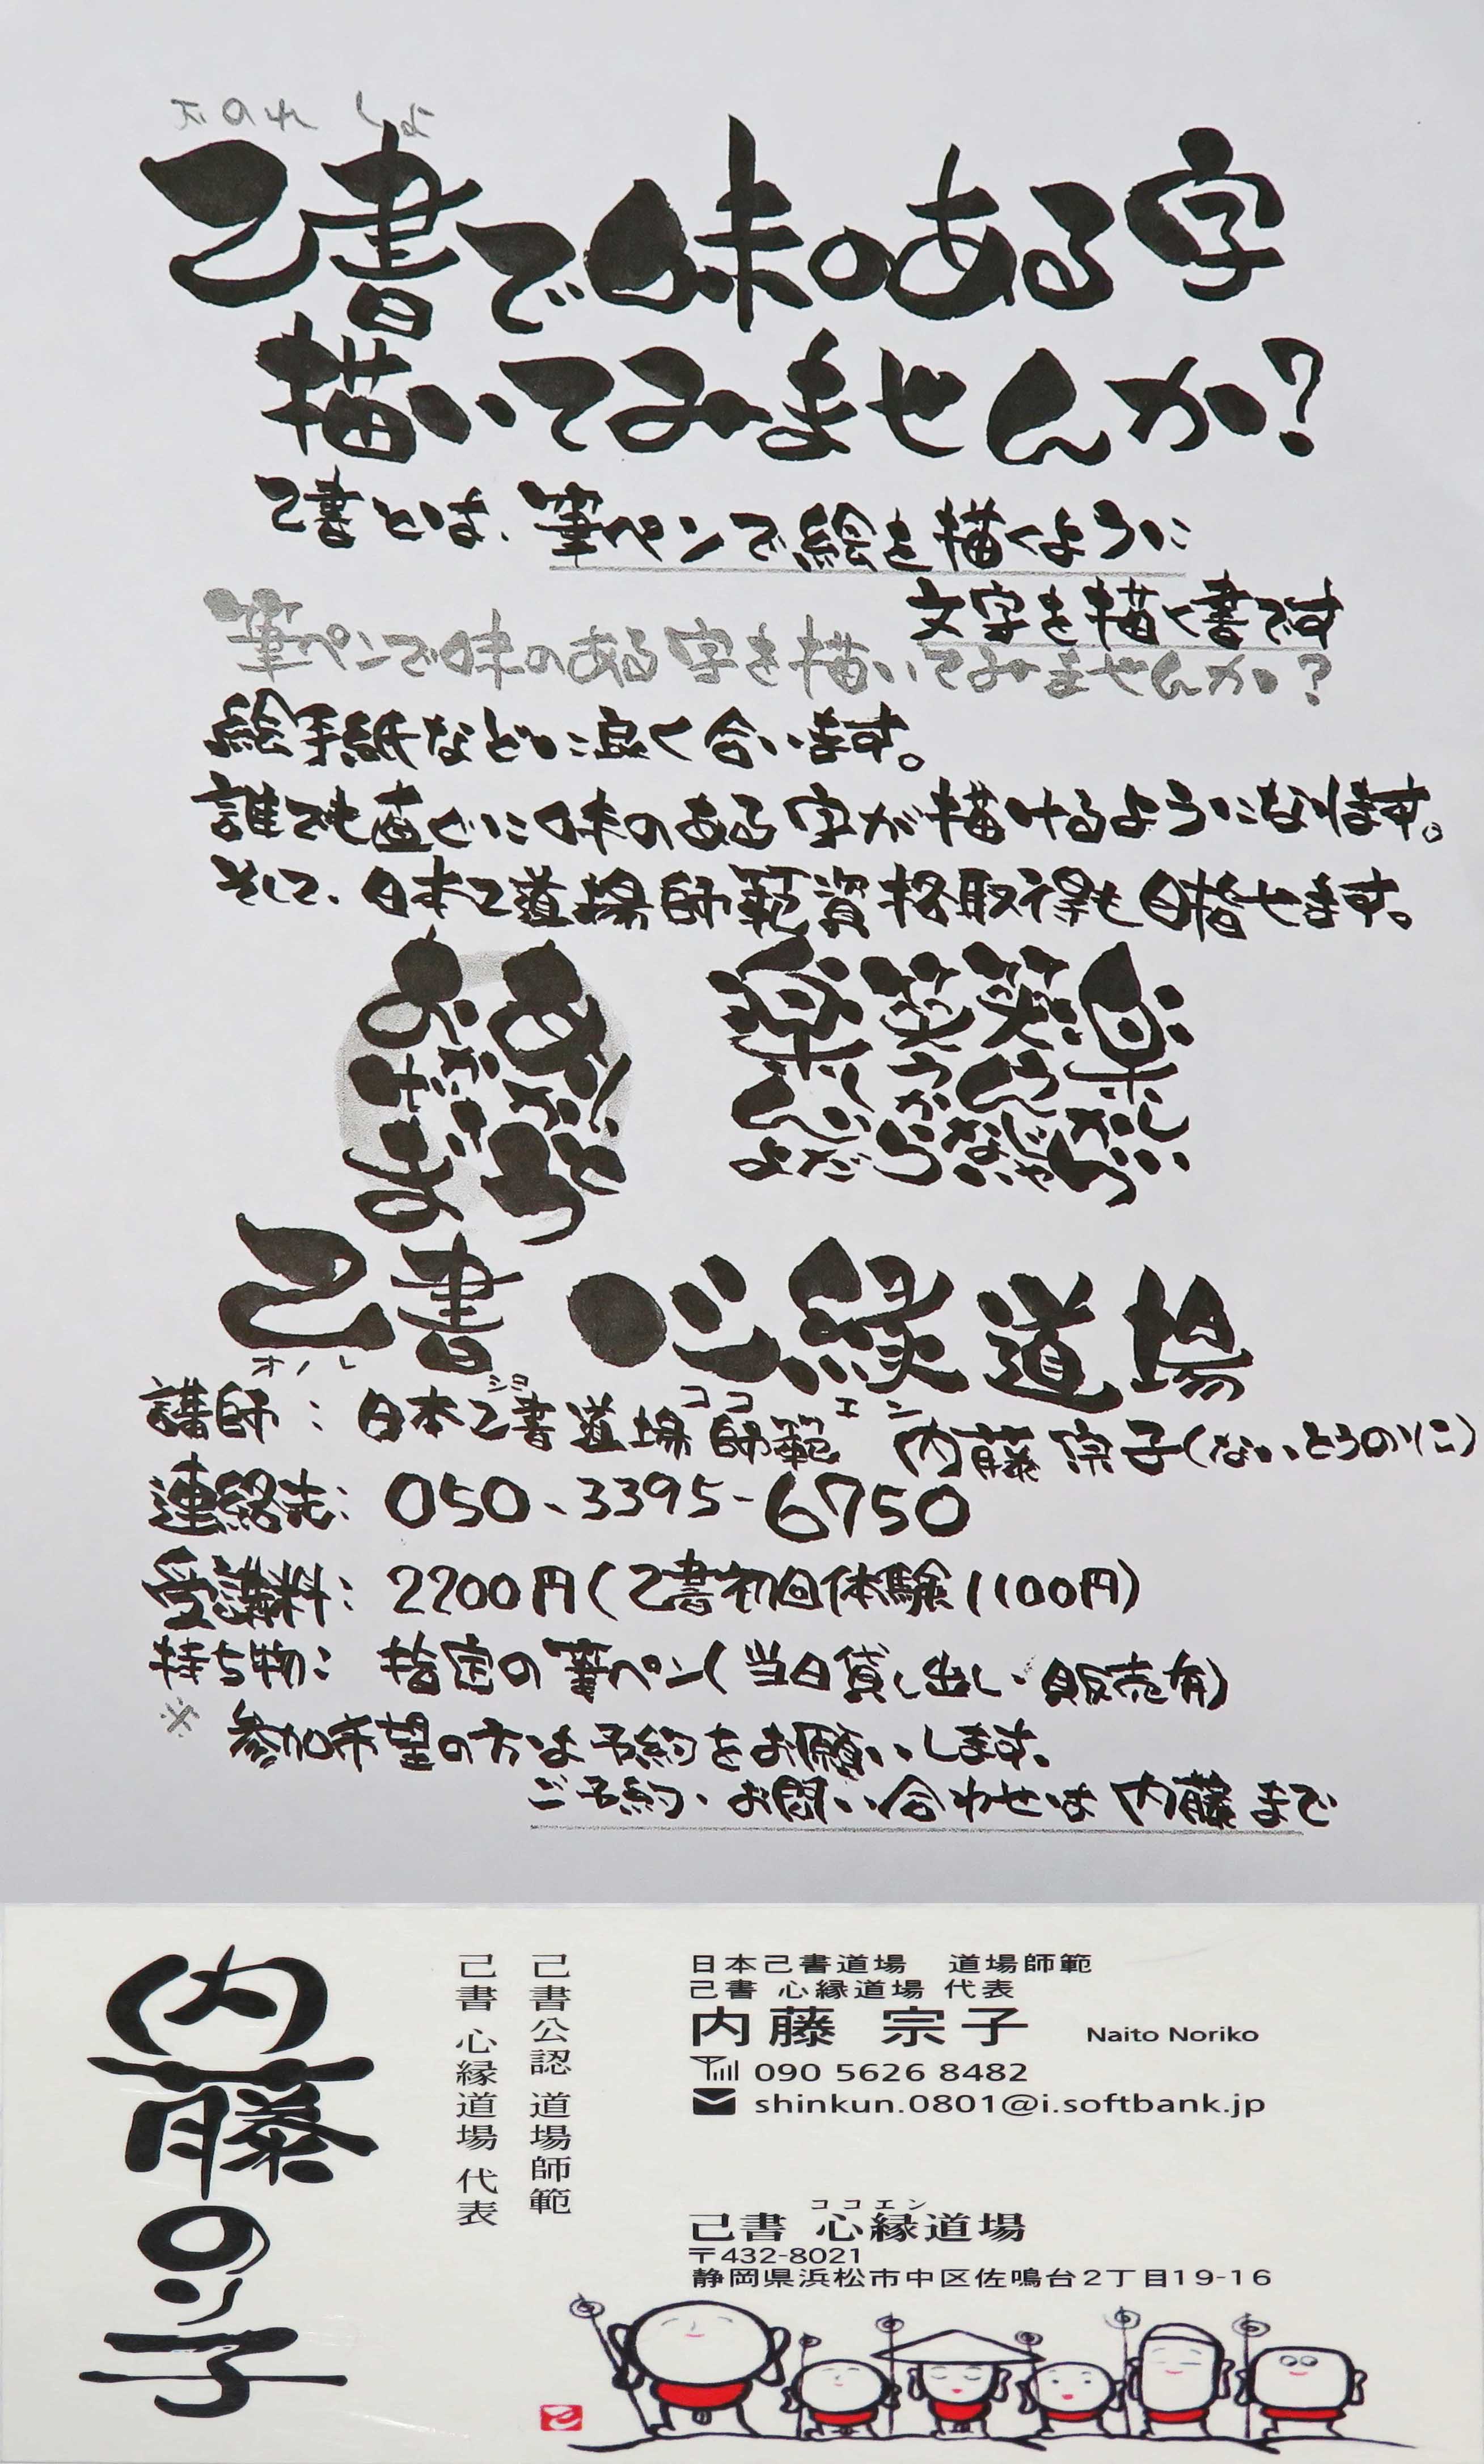 おのれ しょ
己書で味のある字
描いてみませんか?
己書とは、筆ペンで絵を描くように
文字を描く書です
筆ペンで味のある字を描いてみませんか?
絵手紙などに良く合います。
誰でも直ぐに味のある字が描けるようになります。
そして、日本己道場師範資格取得も目指せます。
ありがとう
おかげさま
楽しいから
笑うんじゃない
笑うから
楽しいんだよ
己書 心縁道場
オノレ ショ ココ エン
講師: 日本己書道場師範 内藤宗子(ないとうのりこ)
連絡先: 050-3395-6750
受講料: 2200円(己書初回体験1100円)
持ち物: 指定の筆ペン(当日貸し出し・販売有)
※ 参加希望の方は予約をお願いします。
ご予約、お問い合わせは内藤まで
内藤のり子
己書公認 道場師範
己書 心縁道場 代表
日本己書道場 道場師範
己書 心縁道場 代表
内藤 宗子 Naito Noriko
090 5626 8482
shinkun.0801@i.softbank.jp
ココエン
己書 心縁道場
〒432-8021
静岡県浜松市中区佐鳴台2丁目19-16
己